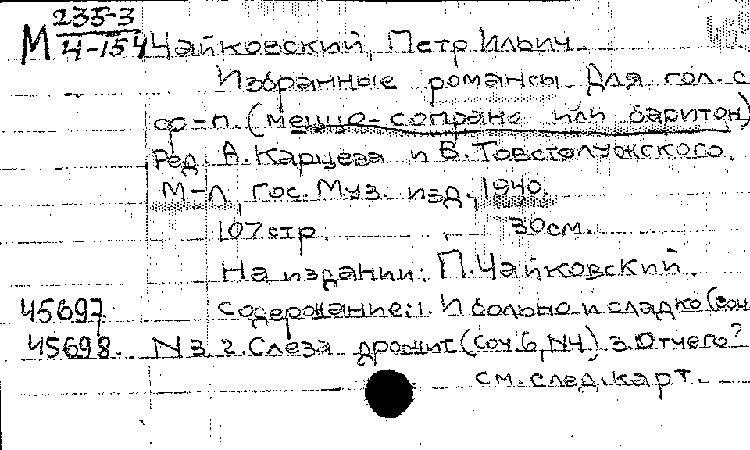 М 235-3
4-154 Чайковский, Петр Ильич.
Избранные романсы. Для гол. с
ф-п. (меццо-сопрано или баритон)
Ред. А. Карцева и В. Товстолужского.
М-Л, Гос. Муз. изд., 1940.
107 стр. 30 см.
На издании: П. Чайковский.
45697 Содержание: 1. И больно и сладко (соч
45698. N 3 2. Слеза дрожит (соч. 6, N4) 3. Отчего?
см. след. карт.